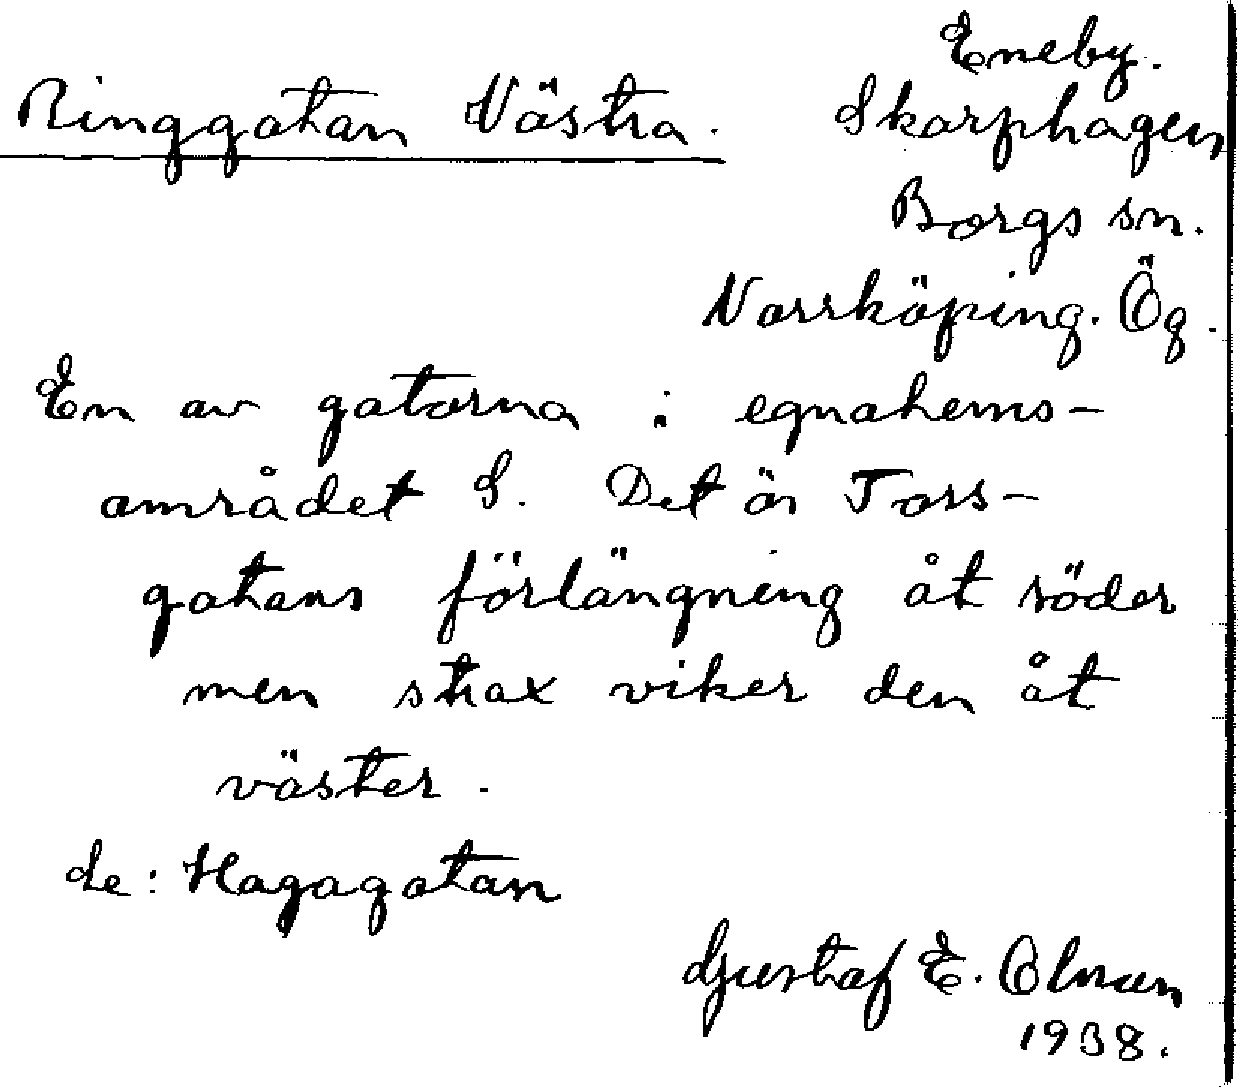 Eneby.
Ringgatan Västra. Skarphagen
Borgs sn.
Norrköping. Ög.
En av gatorna i egnahems-
området S. Det är Tors-
gatans förlängning åt söder
men strax viker den åt
väster.
Se: Hagagatan
Gustaf E. Olman
1938.